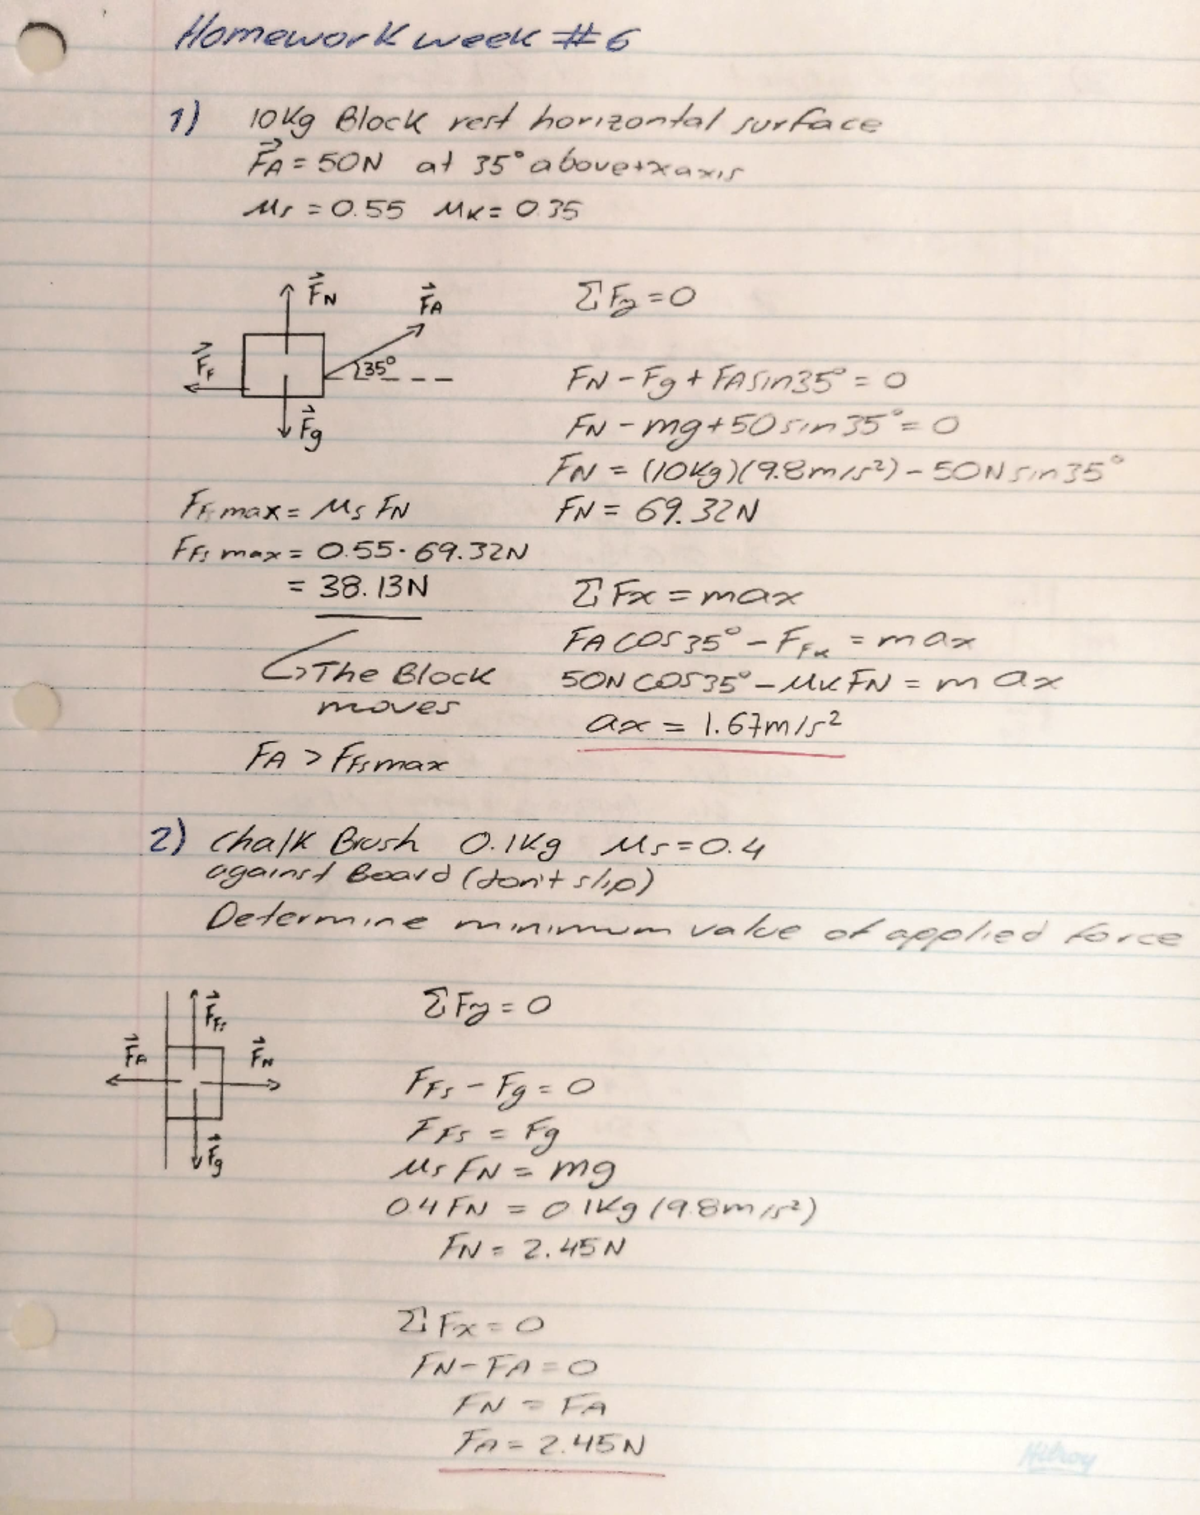 Homework week #6
1) 10Kg Block rest horizontal surface
F⃗A = 50N at 35° above +x axis
μs = 0.55 μk = 0.35
F⃗N
F⃗A
F⃗F
35°
F⃗g
ΣFy = 0
FN - Fg + FA sin35° = 0
FN - mg + 50 sin 35° = 0
FN = (10Kg)(9.8m/s²) - 50N sin35°
FN = 69.32N
FFs max = μs FN
FFs max = 0.55 · 69.32N
= 38.13N
The Block
moves
FA > FFs max
ΣFx = max
FA cos35° - FFk = max
50N cos35° - μk FN = m ax
ax = 1.67m/s²
2) Chalk Brush 0.1Kg μs = 0.4
against Board (don't slip)
Determine minimum value of applied force
F⃗Fs
F⃗A
F⃗N
F⃗g
ΣFy = 0
FFs - Fg = 0
FFs = Fg
μs FN = mg
0.4 FN = 0.1Kg (9.8m/s²)
FN = 2.45N
ΣFx = 0
FN - FA = 0
FN = FA
FA = 2.45N
Hilroy